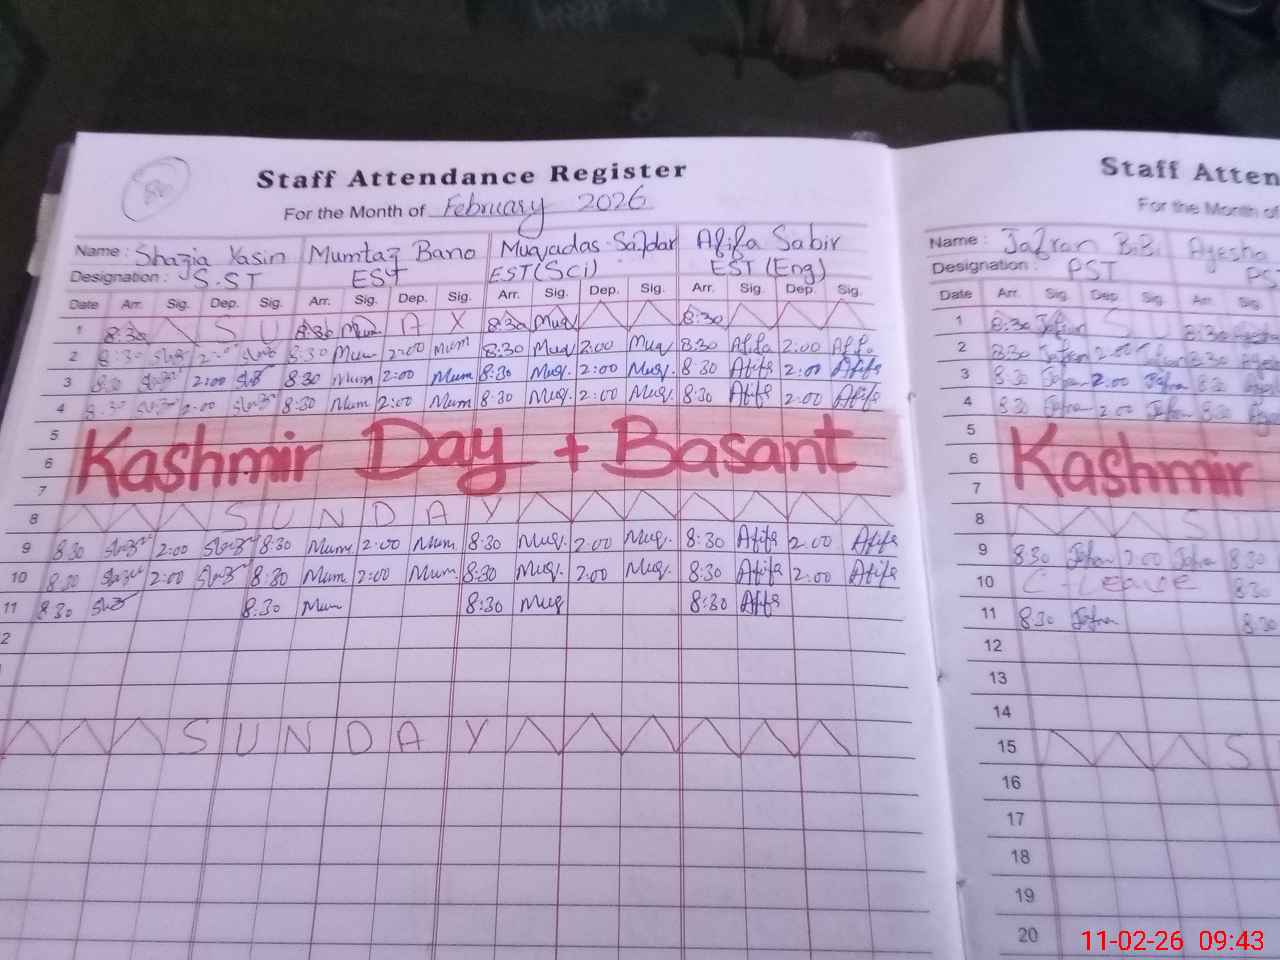 86
Staff Attendance Register
For the Month of February 2026
Name: Shazia Yasin Mumtaz Bano Muqadas Safdar Afifa Sabir
Designation: S.ST EST EST(Sci) EST (Eng)
Date Arr. Sig. Dep. Sig. Arr. Sig. Dep. Sig. Arr. Sig. Dep. Sig. Arr. Sig. Dep. Sig.
1 8:30 S U 8:30 Mum D A Y 8:30 Muq 8:30
2 8:30 2:00 8:30 Mum 2:00 Mum 8:30 Muq 2:00 Muq 8:30 Afifa 2:00 Afifa
3 8:30 2:00 8:30 Mum 2:00 Mum 8:30 Muq. 2:00 Muq. 8:30 Afifa 2:00 Afifa
4 8:30 2:00 8:30 Mum 2:00 Mum 8:30 Muq. 2:00 Muq. 8:30 Afifa 2:00 Afifa
5
6 Kashmir Day + Basant
7
8 S U N D A Y
9 8:30 2:00 8:30 Mum 2:00 Mum 8:30 Muq. 2:00 Muq. 8:30 Afifa 2:00 Afifa
10 8:30 2:00 8:30 Mum 2:00 Mum 8:30 Muq. 2:00 Muq. 8:30 Afifa 2:00 Afifa
11 8:30 8:30 Mum 8:30 Muq 8:30 Afifa
2
S U N D A Y
Staff Atten
For the Month of
Name: Jafran BiBi Ayesha
Designation: PST PS
Date Arr. Sig. Dep. Sig. Arr. Sig.
1 8:30 Jafran S U 8:30
2 8:30 Jafran 2:00 Jafran 8:30
3 8:30 Jafran 2:00 Jafran 8:30
4 8:30 Jafran 2:00 Jafran 8:30
5
6 Kashmir
7
8 S U
9 8:30 Jafran 2:00 Jafran 8:30
10 C-Leave 8:30
11 8:30 Jafran 8:30
12
13
14
15 S
16
17
18
19
20
11-02-26 09:43